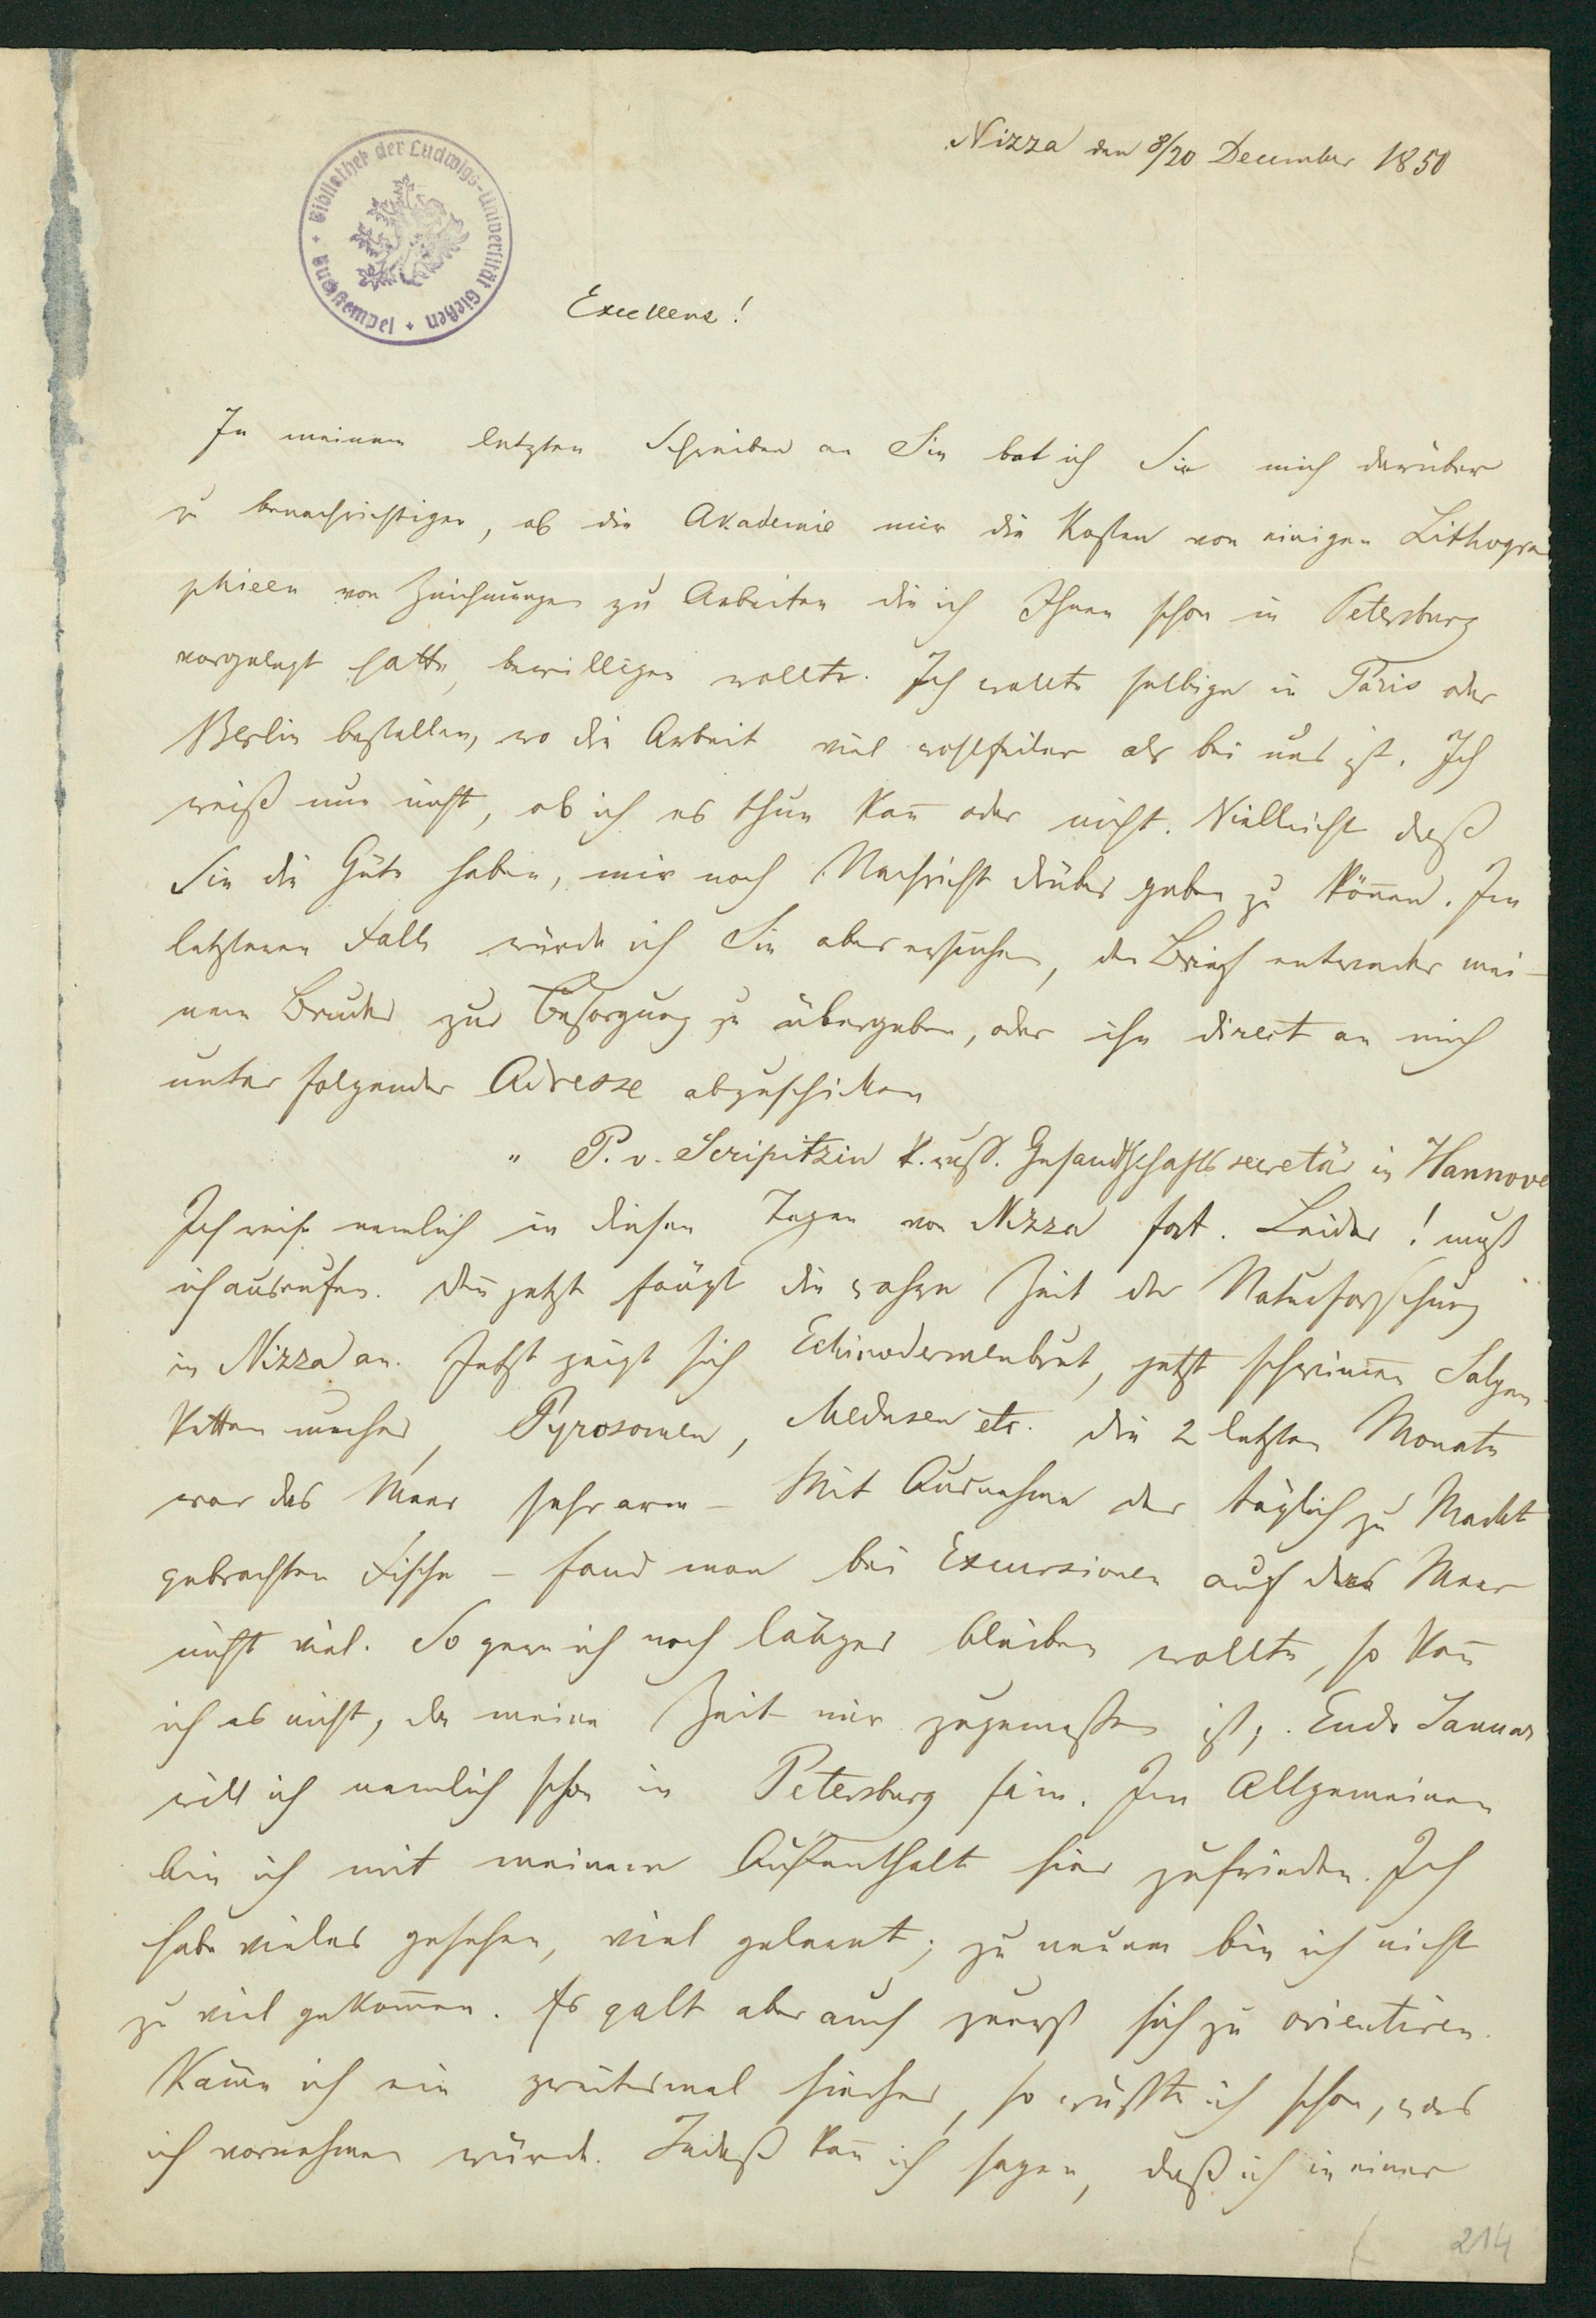 Nizza den 8/20 December 1850
Bibliothek der Ludwigs-Universität Gießen + Buchstempel +
Excellenz!
In meinem letzten Schreiben an Sie bat ich Sie mich darüber
zu benachrichtigen, ob die Akademie mir die Kosten von einigen Lithogra
phieen von Zeichnungen zu Arbeiten die ich Ihnen schon in Petersburg
vorgelegt hatte, bewilligen wollte. Ich wollte selbige in Paris oder
Berlin bestellen, wo die Arbeit viel wohlfeiler als bei uns ist. Ich
weiß nun nicht, ob ich es thun kan̅ oder nicht. Vielleicht daß
Sie die Güte haben, mir noch Nachricht drüber geben zu kön̅en. Im
letzteren Falle würde ich Sie aber ersuchen, den Brief entweder mei-
nem Bruder zur Besorgung zu übergeben, oder ihn direct an mich
unter folgender Adresse abzuschicken
" P. v. Scripitzin k. russ. Gesandtschaftssecretär in Hannove
Ich reise nemlich in diesen Tagen von Nizza fort. Leider! muß
ich ausrufen. Den̅ jetzt fängt die wahre Zeit der Naturforschung
in Nizza an. Jetzt zeigt sich Echinodermenbrut, jetzt schwim̅en Salpen
ketten umher, Pyrosomen, Medusen etc. Die 2 letzten Monate
war das Meer sehr arm – Mit Ausnahme der täglich zu Markt
gebrachten Fische – fand man bei Excursionen auf das Meer
nicht viel. So gern ich noch länger bleiben wollte, so kan̅
ich es nicht, da meine Zeit mir zugemessen ist; Ende Januar
will ich nemlich schon in Petersburg sein. Im Allgemeinen
bin ich mit meinem Aufenthalt hier zufrieden. Ich
habe vieles gesehen, viel gelernt; zu neuem bin ich nicht
zu viel gekom̅en. Es galt aber auch zuerst sich zu orientiren.
Käme ich ein zweitesmal hierher, so wüßte ich schon, was
ich vornehmen würde. Indeß kan̅ ich sagen, daß ich in einer
214